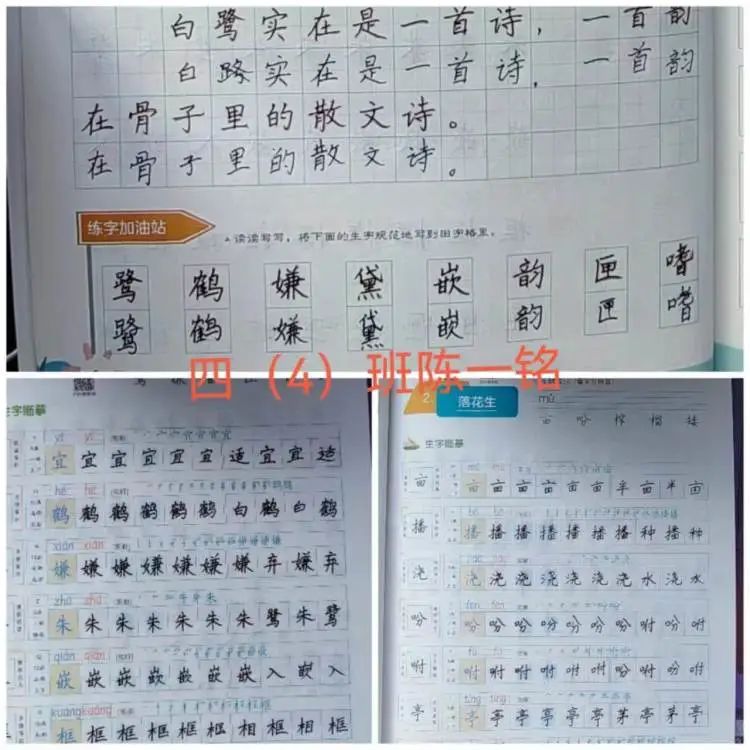 白鹭实在是一首诗，一首韵
白鹭实在是一首诗，一首韵
在骨子里的散文诗。
在骨子里的散文诗。
练字加油站
读读写写，将下面的生字规范地写到田字格里。
鹭 鹤 嫌 黛 嵌 韵 匣 嗜
鹭 鹤 嫌 黛 嵌 韵 匣 嗜
四（4）班陈一铭
生字临摹
yí yí
宜 宜 宜 宜 宜 宜 适 宜 宜 适
hè hè
鹤 鹤 鹤 鹤 鹤 鹤 白 鹤 白 鹤
xián xián
嫌 嫌 嫌 嫌 嫌 嫌 嫌 弃 嫌 弃
zhū zhū
朱 朱 朱 朱 朱 朱 朱 鹭 朱 鹭
qiàn qiàn
嵌 嵌 嵌 嵌 嵌 嵌 嵌 入 嵌 入
kuàng kuàng
框 框 框 框 框 框 相 框 相 框
2
落花生
mǔ
亩 吩 榨 榴 接
生字临摹
亩 亩 亩 亩 亩 亩 亩 半 亩 半 亩
播 播 播 播 播 播 播 播 种 播 种
浇 浇 浇 浇 浇 浇 浇 浇 水 浇 水
fēn fēn
吩 吩 吩 吩 吩 吩 吩 吩 咐 吩 咐
咐 咐 咐 咐 咐 咐 咐 吩 咐
tíng tíng
亭 亭 亭 亭 亭 亭 亭 茅 亭 茅 亭